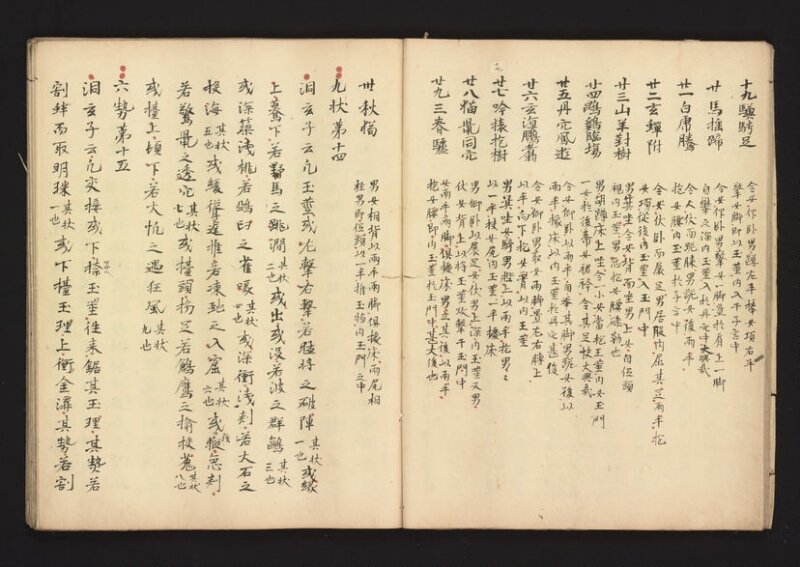 十九驥騁足
令女仰臥男蹲左手捧女項右手
擎女脚即以玉莖內入于子宮中
廿馬搖蹄
令女仰臥男擎女一脚置於肩上一脚
自攀之深內玉莖入於丹穴中大興哉
廿一白虎騰
令女伏面跪膝男跪女後兩手
抱女腰內玉莖於子宮中
廿二玄蟬附
令女伏臥而展足男居股內屈其足兩手抱
女項從後內玉莖入玉門中
廿三山羊對樹
男箕坐令女背面坐男上女自低頭
視內玉莖男急抱女腰磣勒也
廿四鵾鷄臨場
男胡蹲床上坐令一小女當抱玉莖內女玉門
一女於後牽女衿裙令其足快大興哉
廿五丹穴鳳遊
令女仰臥以兩手自舉其脚男跪女後以
兩手據床以內玉莖於丹穴甚俊
廿六玄溟鵬翥
令女仰臥男取女兩脚置左右膊上
以手向下抱女腰以內玉莖
廿七吟猿抱樹
男箕坐女騎男䏶上以兩手抱男男
以一手扶女尻內玉莖一手據床
廿八猫鼠同穴
男仰臥以展足女伏男上深內玉莖又男
伏女背上以將玉莖攻擊于玉門中
廿九三春驢
女兩手兩脚俱據床男立其後以兩手
抱女腰即內玉莖於玉門中甚大俊也
卅秋猫
男女相背以兩手兩脚俱據床兩尻相
拄男即低頭以一手推玉物內玉門之中
九狀第十四
洞玄子云凡玉莖或左擊右擊若猛將之破陣其狀一也或緣
上驀下若野馬之跳澗其狀二也或出或沒若波之群鷗其狀三也
或深築淺挑若鵶臼之雀喙其狀四也或深衝淺刺若大石之
投海其狀五也或緩聳遲推若凍虵之入窟其狀六也或疾急刺
若驚鼠之透穴其狀七也或擡頭拘足若鶬鷹之揄狡兎其狀八也
或擡上頓下若大帆之遇狂風其狀九也
六勢第十五
洞玄子云凡交接或下捺玉莖往來鋸其玉理其勢若
割蚌而取明珠其狀一也或下擡玉理上衝金溝其勢若割